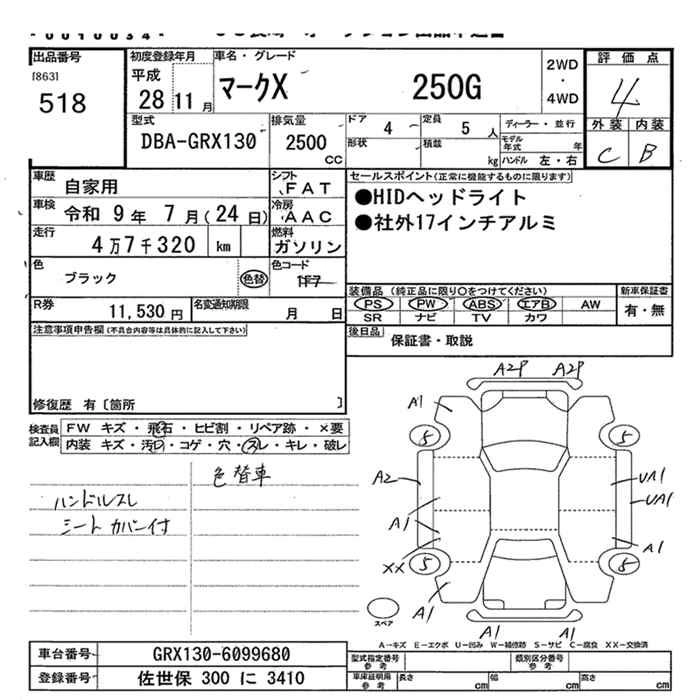 出品番号
[863]
518
初度登録年月
平成
28 11 月
車名・グレード
マークX 250G
2WD
・
4WD
評価点
4
外装 内装
C B
型式
DBA-GRX130
排気量
2500
CC
ドア 4
定員 5 人
ディーラー・並行
形状
積載 kg
モデル年式 年
ハンドル 左・右
車歴 自家用
シフト FAT
車検 令和 9 年 7 月 (24 日)
冷房 AAC
走行 4 万 7 千 320 km
燃料 ガソリン
色 ブラック 色替
色コード 1F7
R券 11,530 円
名変通知期限 月 日
セールスポイント(正常に機能するものに限ります)
●HIDヘッドライト
●社外17インチアルミ
装備品 (純正品に限り○をつけてください)
新車保証書
PS PW ABS エアB AW
SR ナビ TV カワ
有・無
後日品 保証書・取説
注意事項申告欄(不具合内容等は具体的に記入して下さい)
修復歴 有〔箇所 〕
検査員記入欄
FW キズ・飛石・ヒビ割・リペア跡・×要
内装 キズ・汚れ・コゲ・穴・スレ・キレ・破レ
色替車
ハンドルスレ
シートカバー付
A2P A2P
A1
5 5
A2
UA1
UA1
A1
A1
XX
5 5
A1
A1 A1
スペア
A-キズ E-エクボ U-凹み W-補修跡 S-サビ C-腐食 XX-交換済
車台番号 GRX130-6099680
登録番号 佐世保 300 に 3410
型式指定番号 参考
類別区分番号 参考
車庫証明用 参考
長さ cm
幅 cm
高さ cm